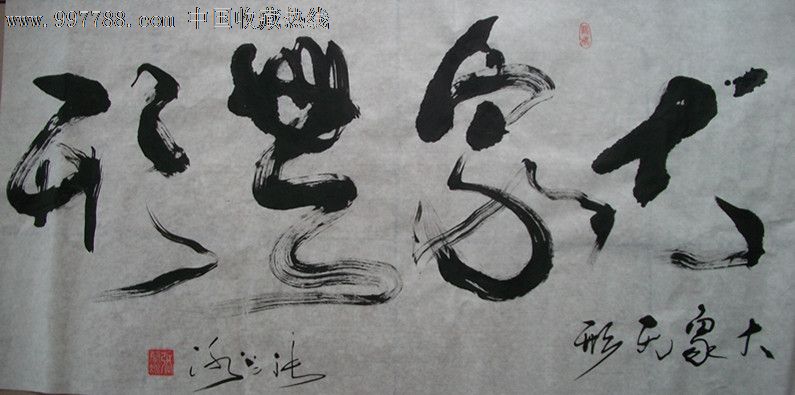 www.997788.com 中国收藏热线
大象無形
大象无形